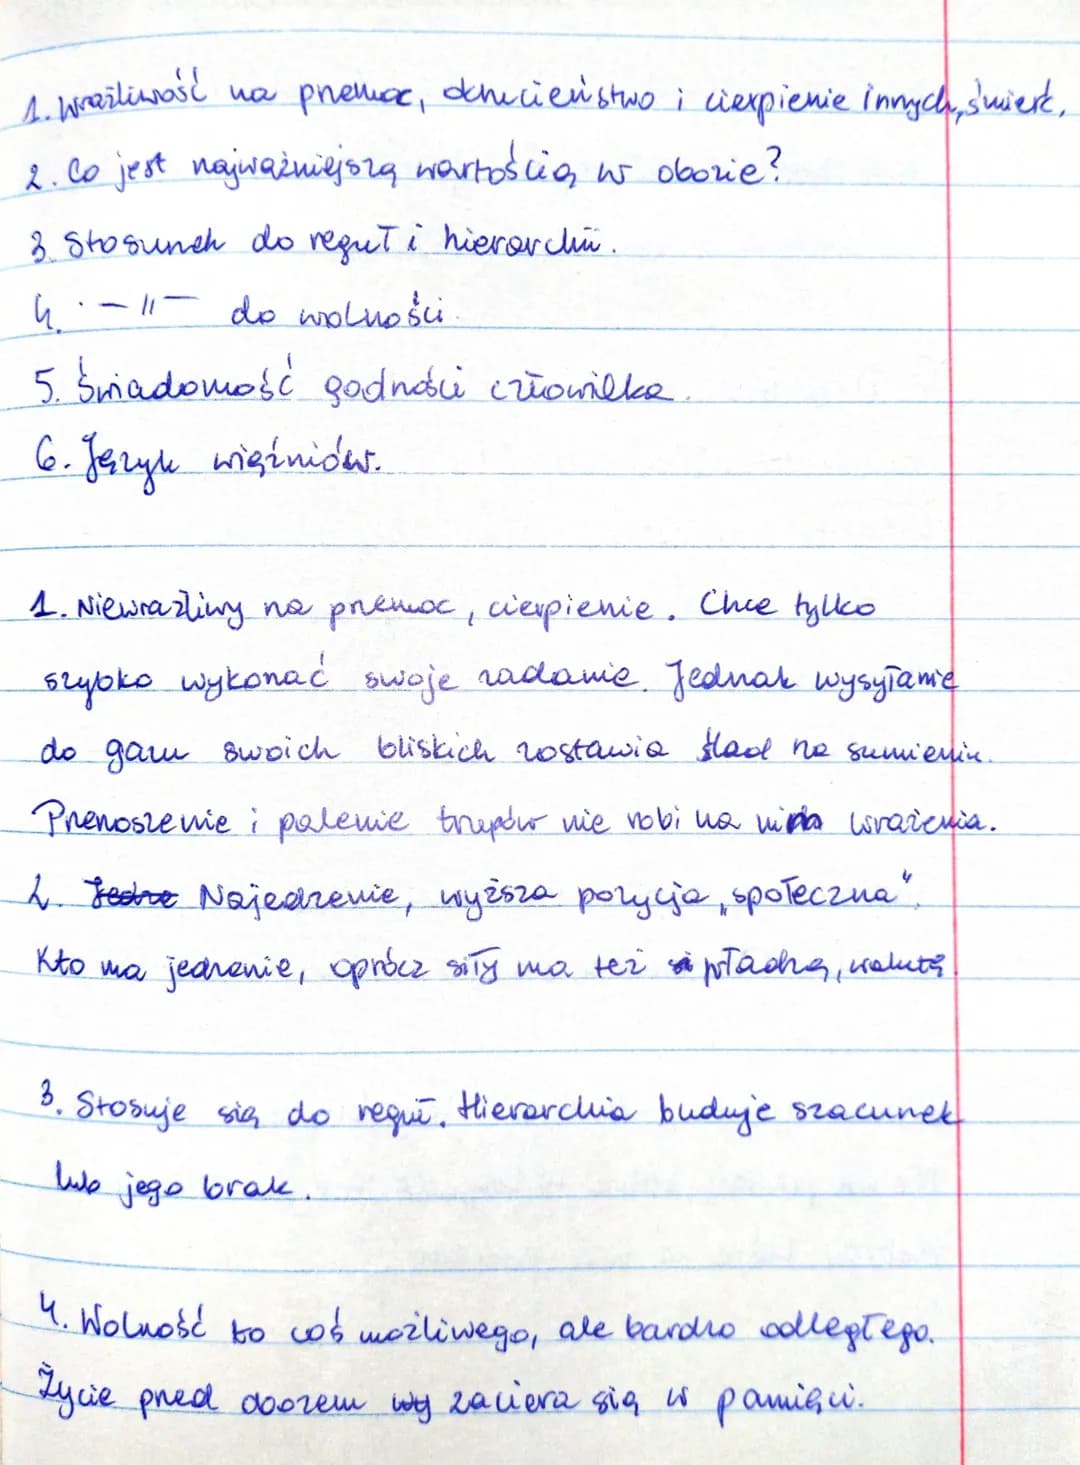 1. Wrażliwość na przemoc, okrucieństwo i cierpienie innych, śmierć.
2. Co jest najważniejszą wartością w obozie?
3. Stosunek do reguł i hierarchii.
4. -||- do wolności.
5. Świadomość godności człowieka.
6. Język więźniów.
1. Niewrażliwy na przemoc, cierpienie. Chce tylko
szybko wykonać swoje zadanie. Jednak wysyłanie
do gazu swoich bliskich zostawia ślad na sumieniu.
Przenoszenie i palenie trupów nie robi na nim wrażenia.
2. Najedzenie, wyższa pozycja „społeczna".
Kto ma jedzenie, oprócz siły ma też władzę, walutę.
3. Stosuje się do reguł. Hierarchia buduje szacunek
lub jego brak.
4. Wolność to coś możliwego, ale bardzo odległego.
Życie przed obozem zaciera się w pamięci.